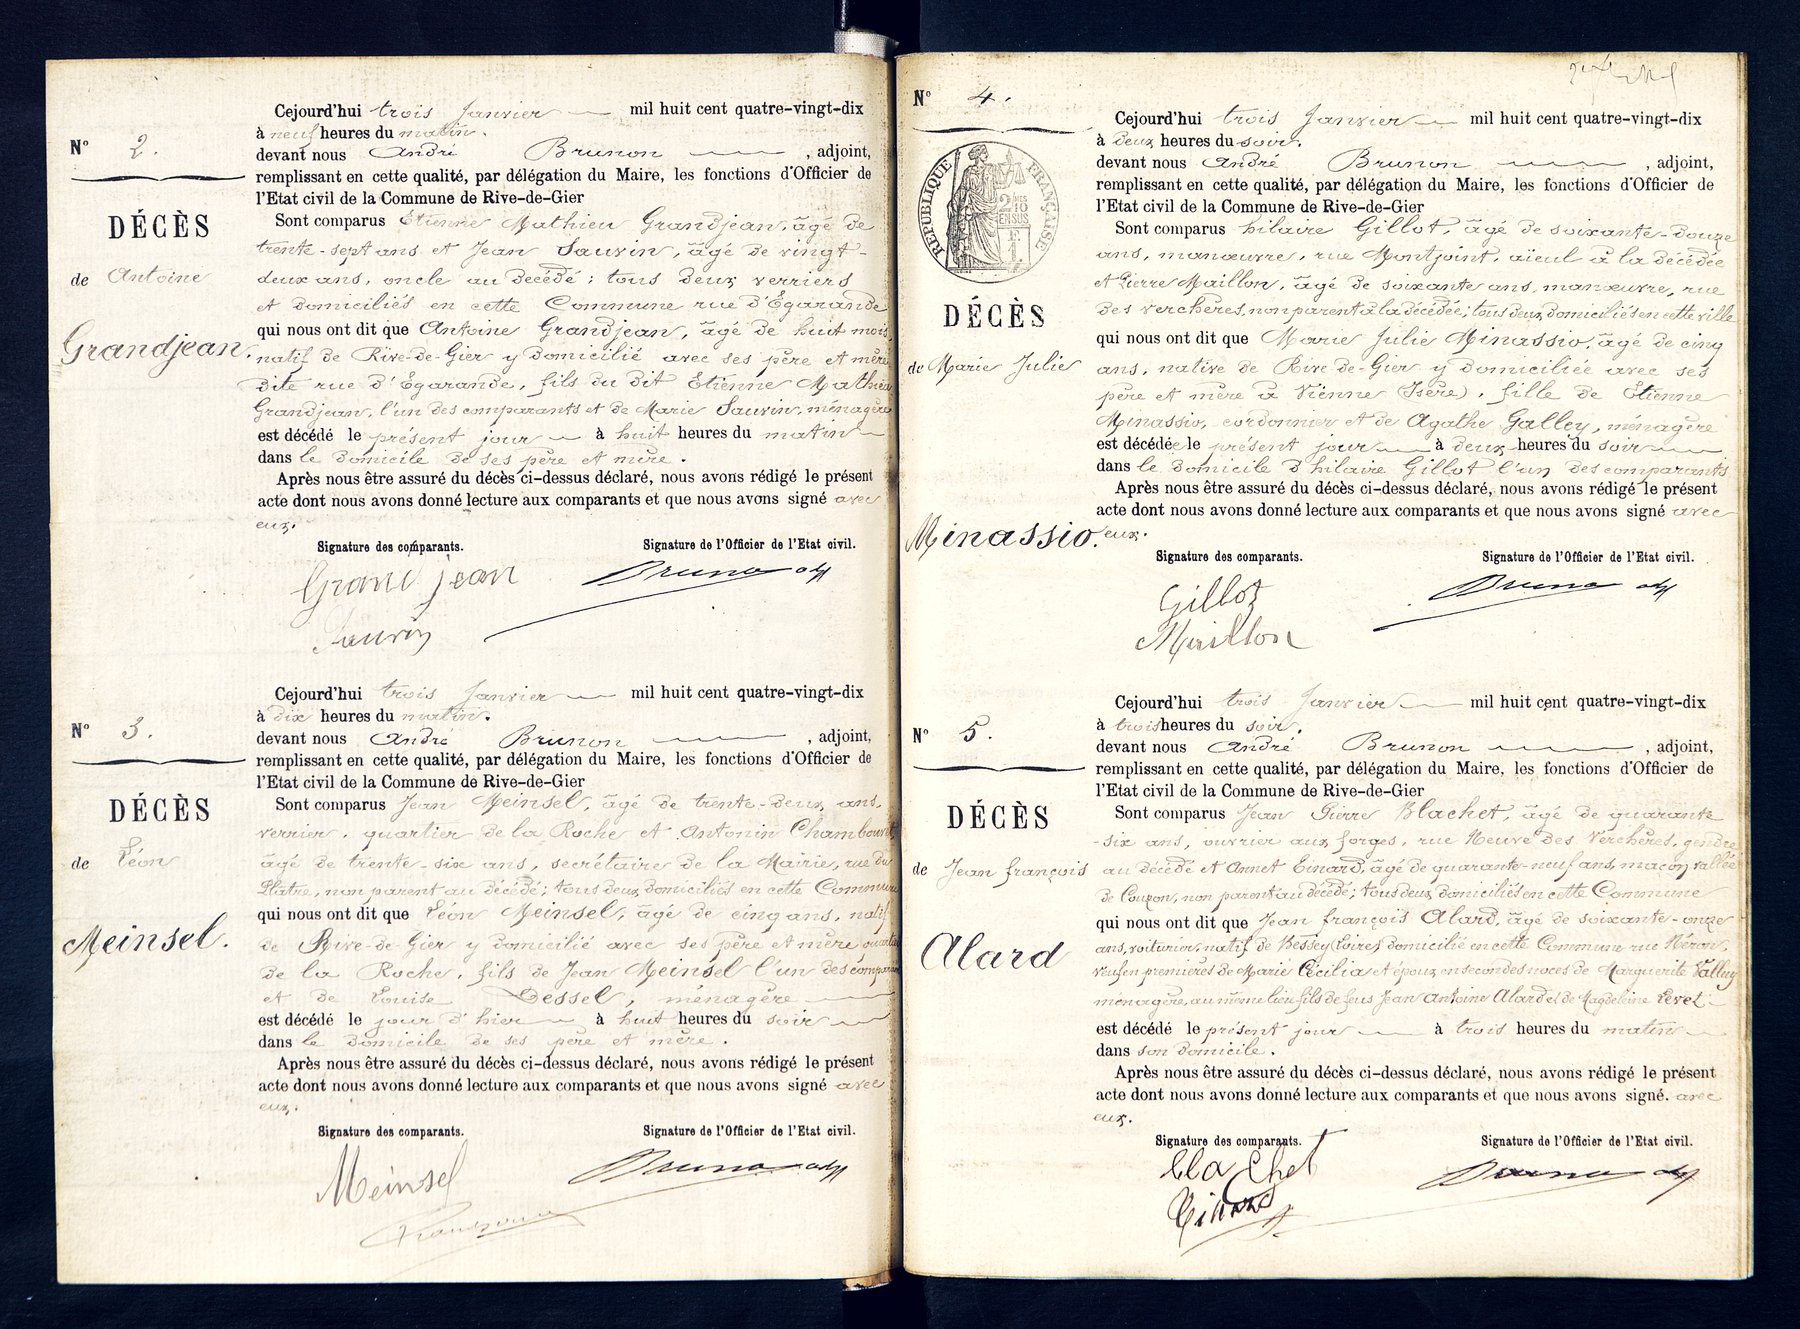 Nº 2.
DÉCÈS
de Antoine
Grandjean.
Cejourd'hui trois Janvier mil huit cent quatre-vingt-dix
à neuf heures du matin.
devant nous André Brunon , adjoint,
remplissant en cette qualité, par délégation du Maire, les fonctions d'Officier de
l'Etat civil de la Commune de Rive-de-Gier
Sont comparus Etienne Mathieu Grandjean, âgé de
trente-sept ans et Jean Sauvin, âgé de vingt-
deux ans, oncle au décédé ; tous deux verriers
et domiciliés en cette Commune rue d'Égarande
qui nous ont dit que Antoine Grandjean, âgé de huit mois,
natif de Rive-de-Gier y domicilié avec ses père et mère
dite rue d'Égarande, fils du dit Etienne Mathieu
Grandjean, l'un des comparants et de Marie Sauvin, ménagère
est décédé le présent jour à huit heures du matin
dans le domicile de ses père et mère.
Après nous être assuré du décès ci-dessus déclaré, nous avons rédigé le présent
acte dont nous avons donné lecture aux comparants et que nous avons signé avec
eux.
Signature des comparants. Signature de l'Officier de l'Etat civil.
Grand jean Brunon adj
Sauvin
Nº 3.
DÉCÈS
de Léon
Meinsel.
Cejourd'hui trois Janvier mil huit cent quatre-vingt-dix
à dix heures du matin.
devant nous André Brunon , adjoint,
remplissant en cette qualité, par délégation du Maire, les fonctions d'Officier de
l'Etat civil de la Commune de Rive-de-Gier
Sont comparus Jean Meinsel, âgé de trente-deux ans,
verrier, quartier de la Roche et Antonin Chambouvet
âgé de trente-six ans, secrétaire de la Mairie, rue du
Plâtre, non parent au décédé ; tous deux domiciliés en cette Commune
qui nous ont dit que Léon Meinsel, âgé de cinq ans, natif
de Rive-de-Gier y domicilié avec ses père et mère quartier
de la Roche, fils de Jean Meinsel l'un des comparants
et de Louise Dessel, ménagère
est décédé le jour d'hier à huit heures du soir
dans le domicile de ses père et mère.
Après nous être assuré du décès ci-dessus déclaré, nous avons rédigé le présent
acte dont nous avons donné lecture aux comparants et que nous avons signé avec
eux.
Signature des comparants. Signature de l'Officier de l'Etat civil.
Meinsel Brunon adj
Nº 4.
RÉPUBLIQUE FRANÇAISE
2 MES
10
EN SUS
F.
1
DÉCÈS
de Marie Julie
Minassio.
Cejourd'hui trois Janvier mil huit cent quatre-vingt-dix
à deux heures du soir.
devant nous André Brunon , adjoint,
remplissant en cette qualité, par délégation du Maire, les fonctions d'Officier de
l'Etat civil de la Commune de Rive-de-Gier
Sont comparus hilaire Gillot, âgé de soixante-douze
ans, manœuvre, rue Montjoint, aïeul à la décédée
et Pierre Maillon, âgé de soixante ans, manœuvre, rue
des verchères, non parent à la décédée ; tous deux domiciliés en cette ville
qui nous ont dit que Marie Julie Minassio, âgé de cinq
ans, native de Rive-de-Gier y domiciliée avec ses
père et mère à Vienne (Isère), fille de Etienne
Minassio, cordonnier et de Agathe Galley, ménagère
est décédée le présent jour à deux heures du soir
dans le domicile d'hilaire Gillot l'un des comparants
Après nous être assuré du décès ci-dessus déclaré, nous avons rédigé le présent
acte dont nous avons donné lecture aux comparants et que nous avons signé avec
eux.
Signature des comparants. Signature de l'Officier de l'Etat civil.
Gillot Brunon adj
Maillon
Nº 5.
DÉCÈS
de Jean françois
Alard
Cejourd'hui trois Janvier mil huit cent quatre-vingt-dix
à trois heures du soir.
devant nous André Brunon , adjoint,
remplissant en cette qualité, par délégation du Maire, les fonctions d'Officier de
l'Etat civil de la Commune de Rive-de-Gier
Sont comparus Jean Pierre Blachet, âgé de quarante
-six ans, ouvrier aux forges, rue Neuve des Verchères, gendre
au décédé et Annet Einard, âgé de quarante-neuf ans, maçon vallée
de Couzon, non parent au décédé ; tous deux domiciliés en cette Commune
qui nous ont dit que Jean françois Alard, âgé de soixante-onze
ans, voiturier, natif de Bessey (Loire) domicilié en cette Commune rue Néron,
veuf en premières de Marie Cécilia et époux en secondes noces de Marguerite Valluy
ménagère, au même lieu fils de feus Jean Antoine Alard et de Magdeleine Levet
est décédé le présent jour à trois heures du matin
dans son domicile.
Après nous être assuré du décès ci-dessus déclaré, nous avons rédigé le présent
acte dont nous avons donné lecture aux comparants et que nous avons signé. avec
eux.
Signature des comparants. Signature de l'Officier de l'Etat civil.
bla Chet Brunon adj